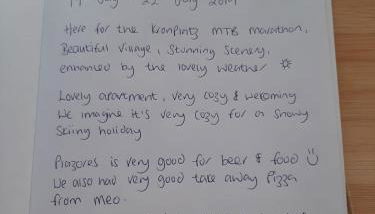 22 July 2019
Here for the Kronplatz MTB marathon,
Beautiful Village, Stunning Scenery,
enhanced by the lovely weather
Lovely apartment, very cozy & welcoming
We imagine it's very cozy for a snowy
Skiing holiday
is very good for beer & food
We also had very good take away Pizza
from meo.